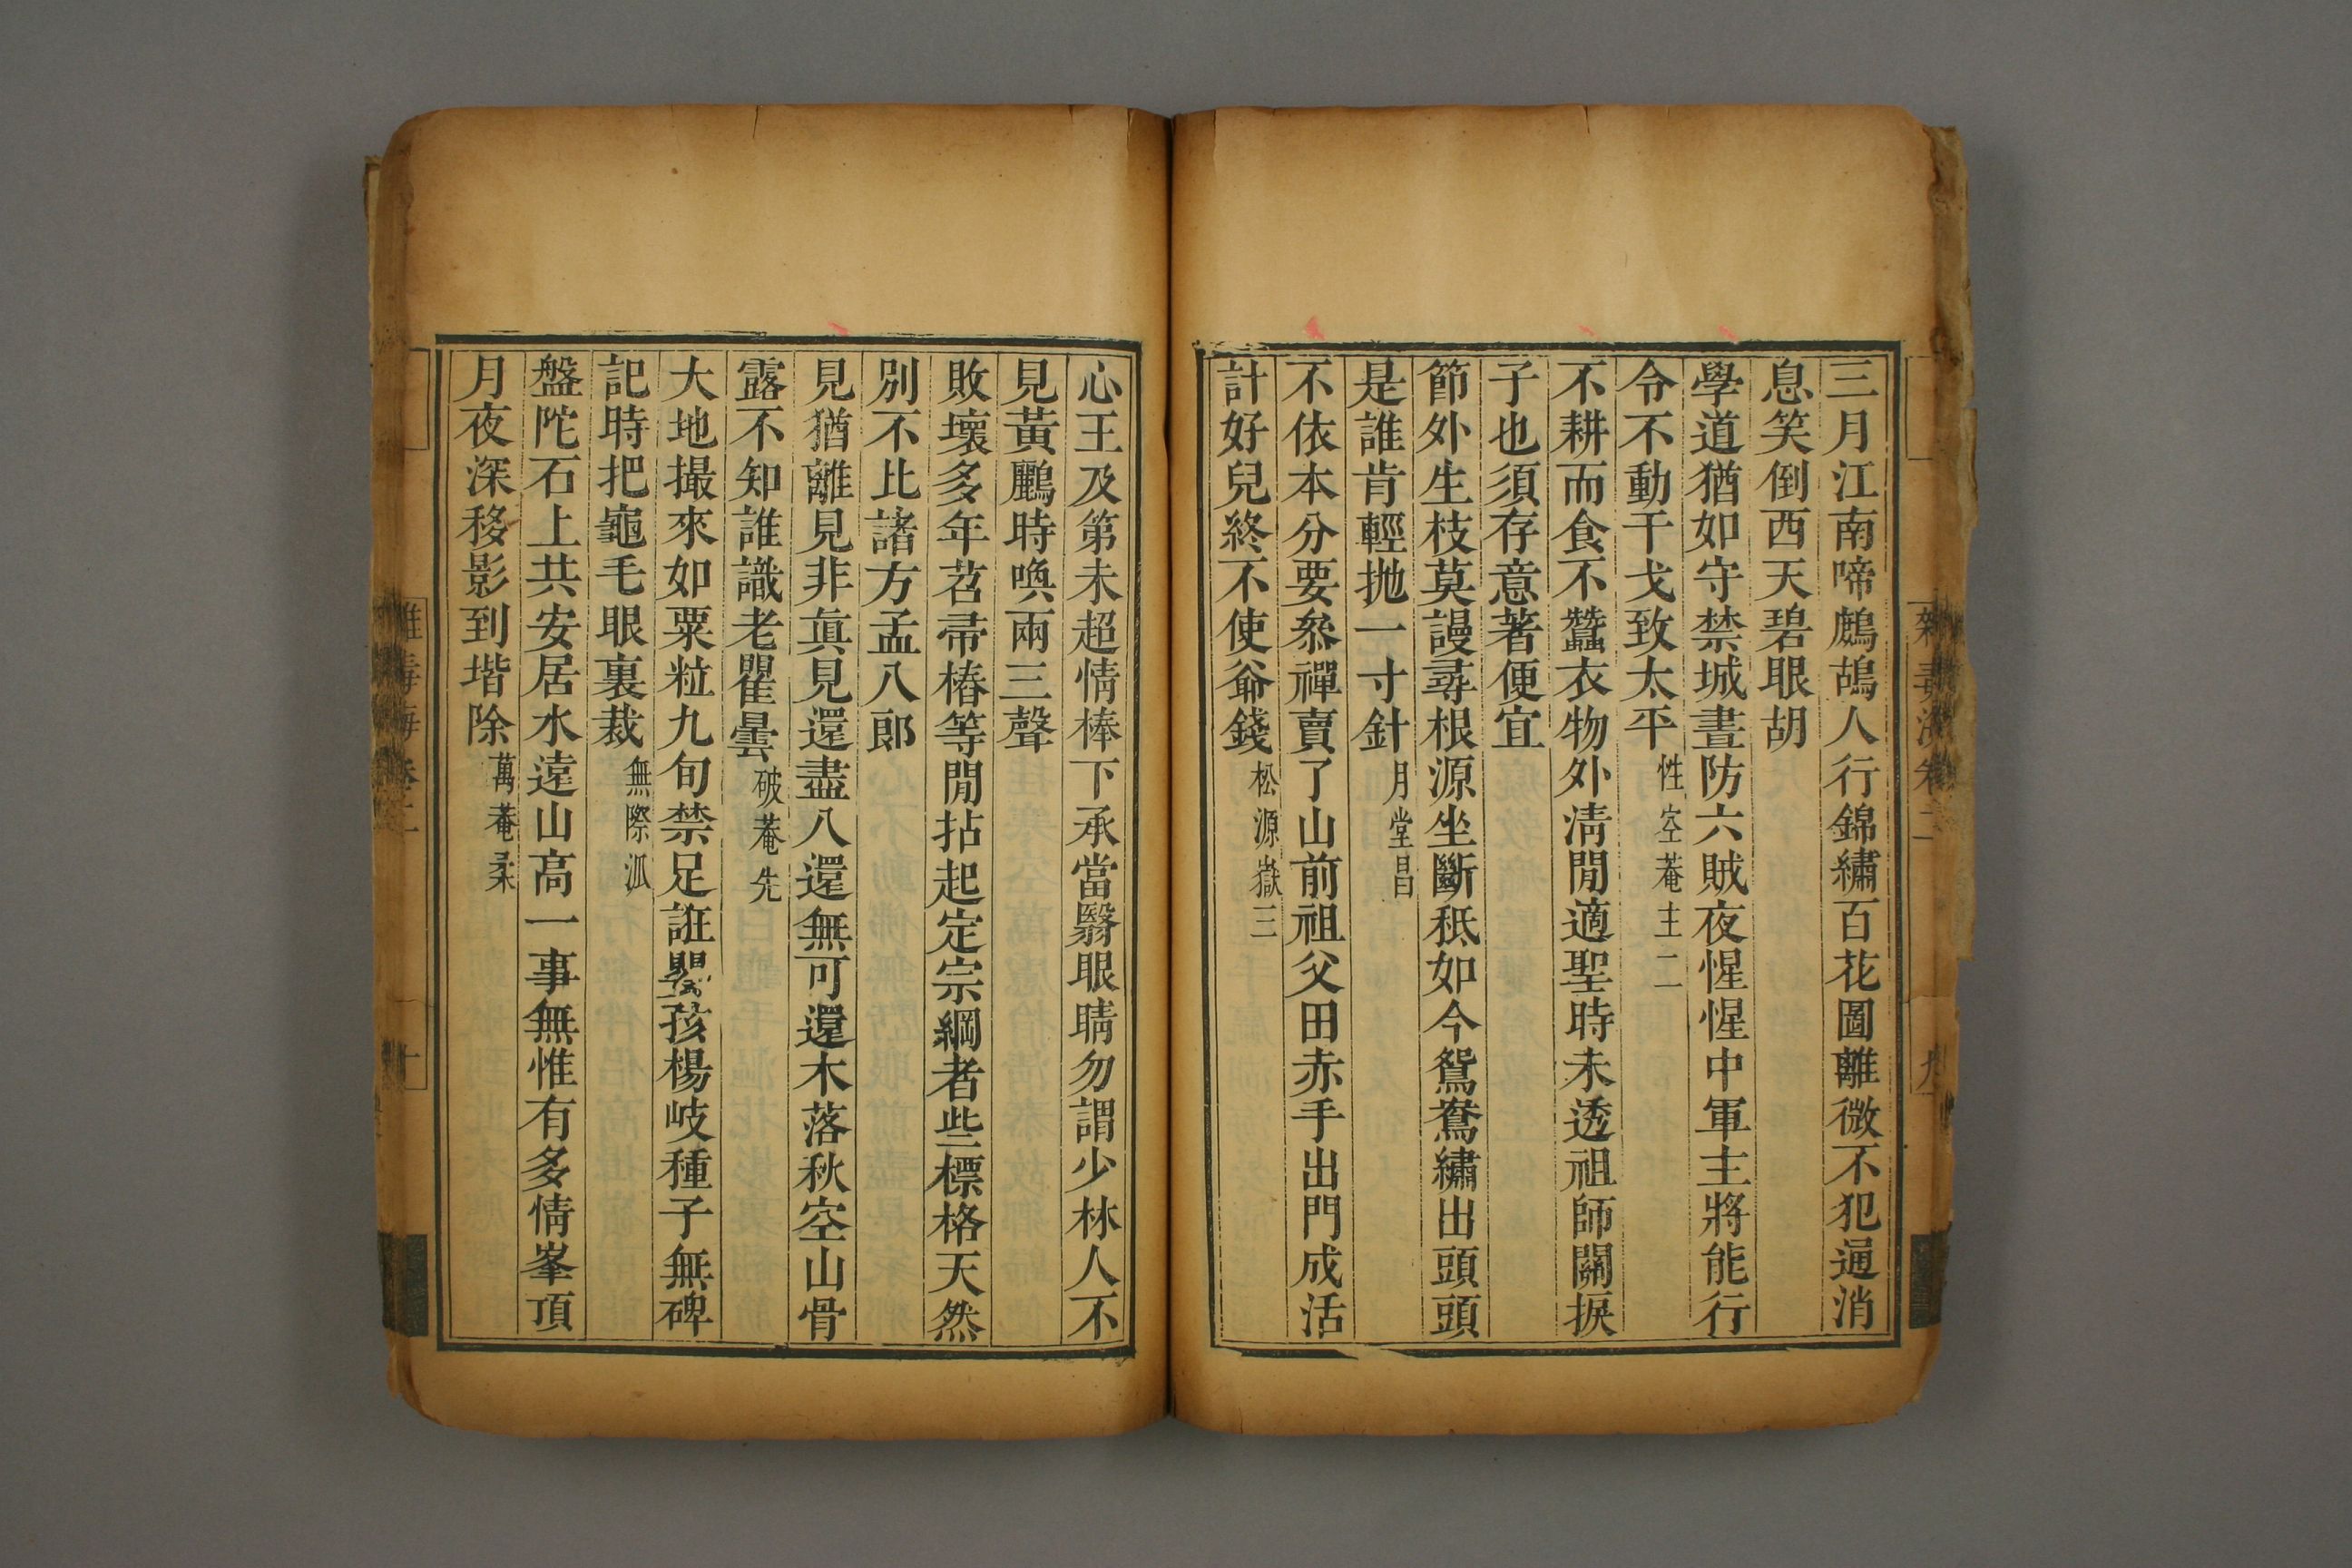 三月江南啼鷓鴣人行錦繡百花圖離微不犯通消
息笑倒西天碧眼胡
學道猶如守禁城晝防六賊夜惺惺中軍主將能行
令不動干戈致太平性空菴主二
不耕而食不蠶衣物外清閒適聖時未透祖師關捩
子也須存意著便宜
節外生枝莫謾尋根源坐斷秪如今鴛鴦繡出頭頭
是誰肯輕拋一寸針月堂昌
不依本分要叅禪賣了山前祖父田赤手出門成活
計好兒終不使爺錢松源嶽三
心王及第未超情棒下承當翳眼睛勿謂少林人不
見黃鸝時喚兩三聲
敗壞多年苕帚樁等閒拈起定宗綱者些標格天然
別不比諸方孟八郎
見猶離見非眞見還盡八還無可還木落秋空山骨
露不知誰識老瞿曇破菴先
大地撮來如粟粒九旬禁足誑嬰孩楊岐種子無碑
記時把龜毛眼裏裁無際派
盤陀石上共安居水遠山高一事無惟有多情峯頂
月夜深移影到堦除萬菴柔